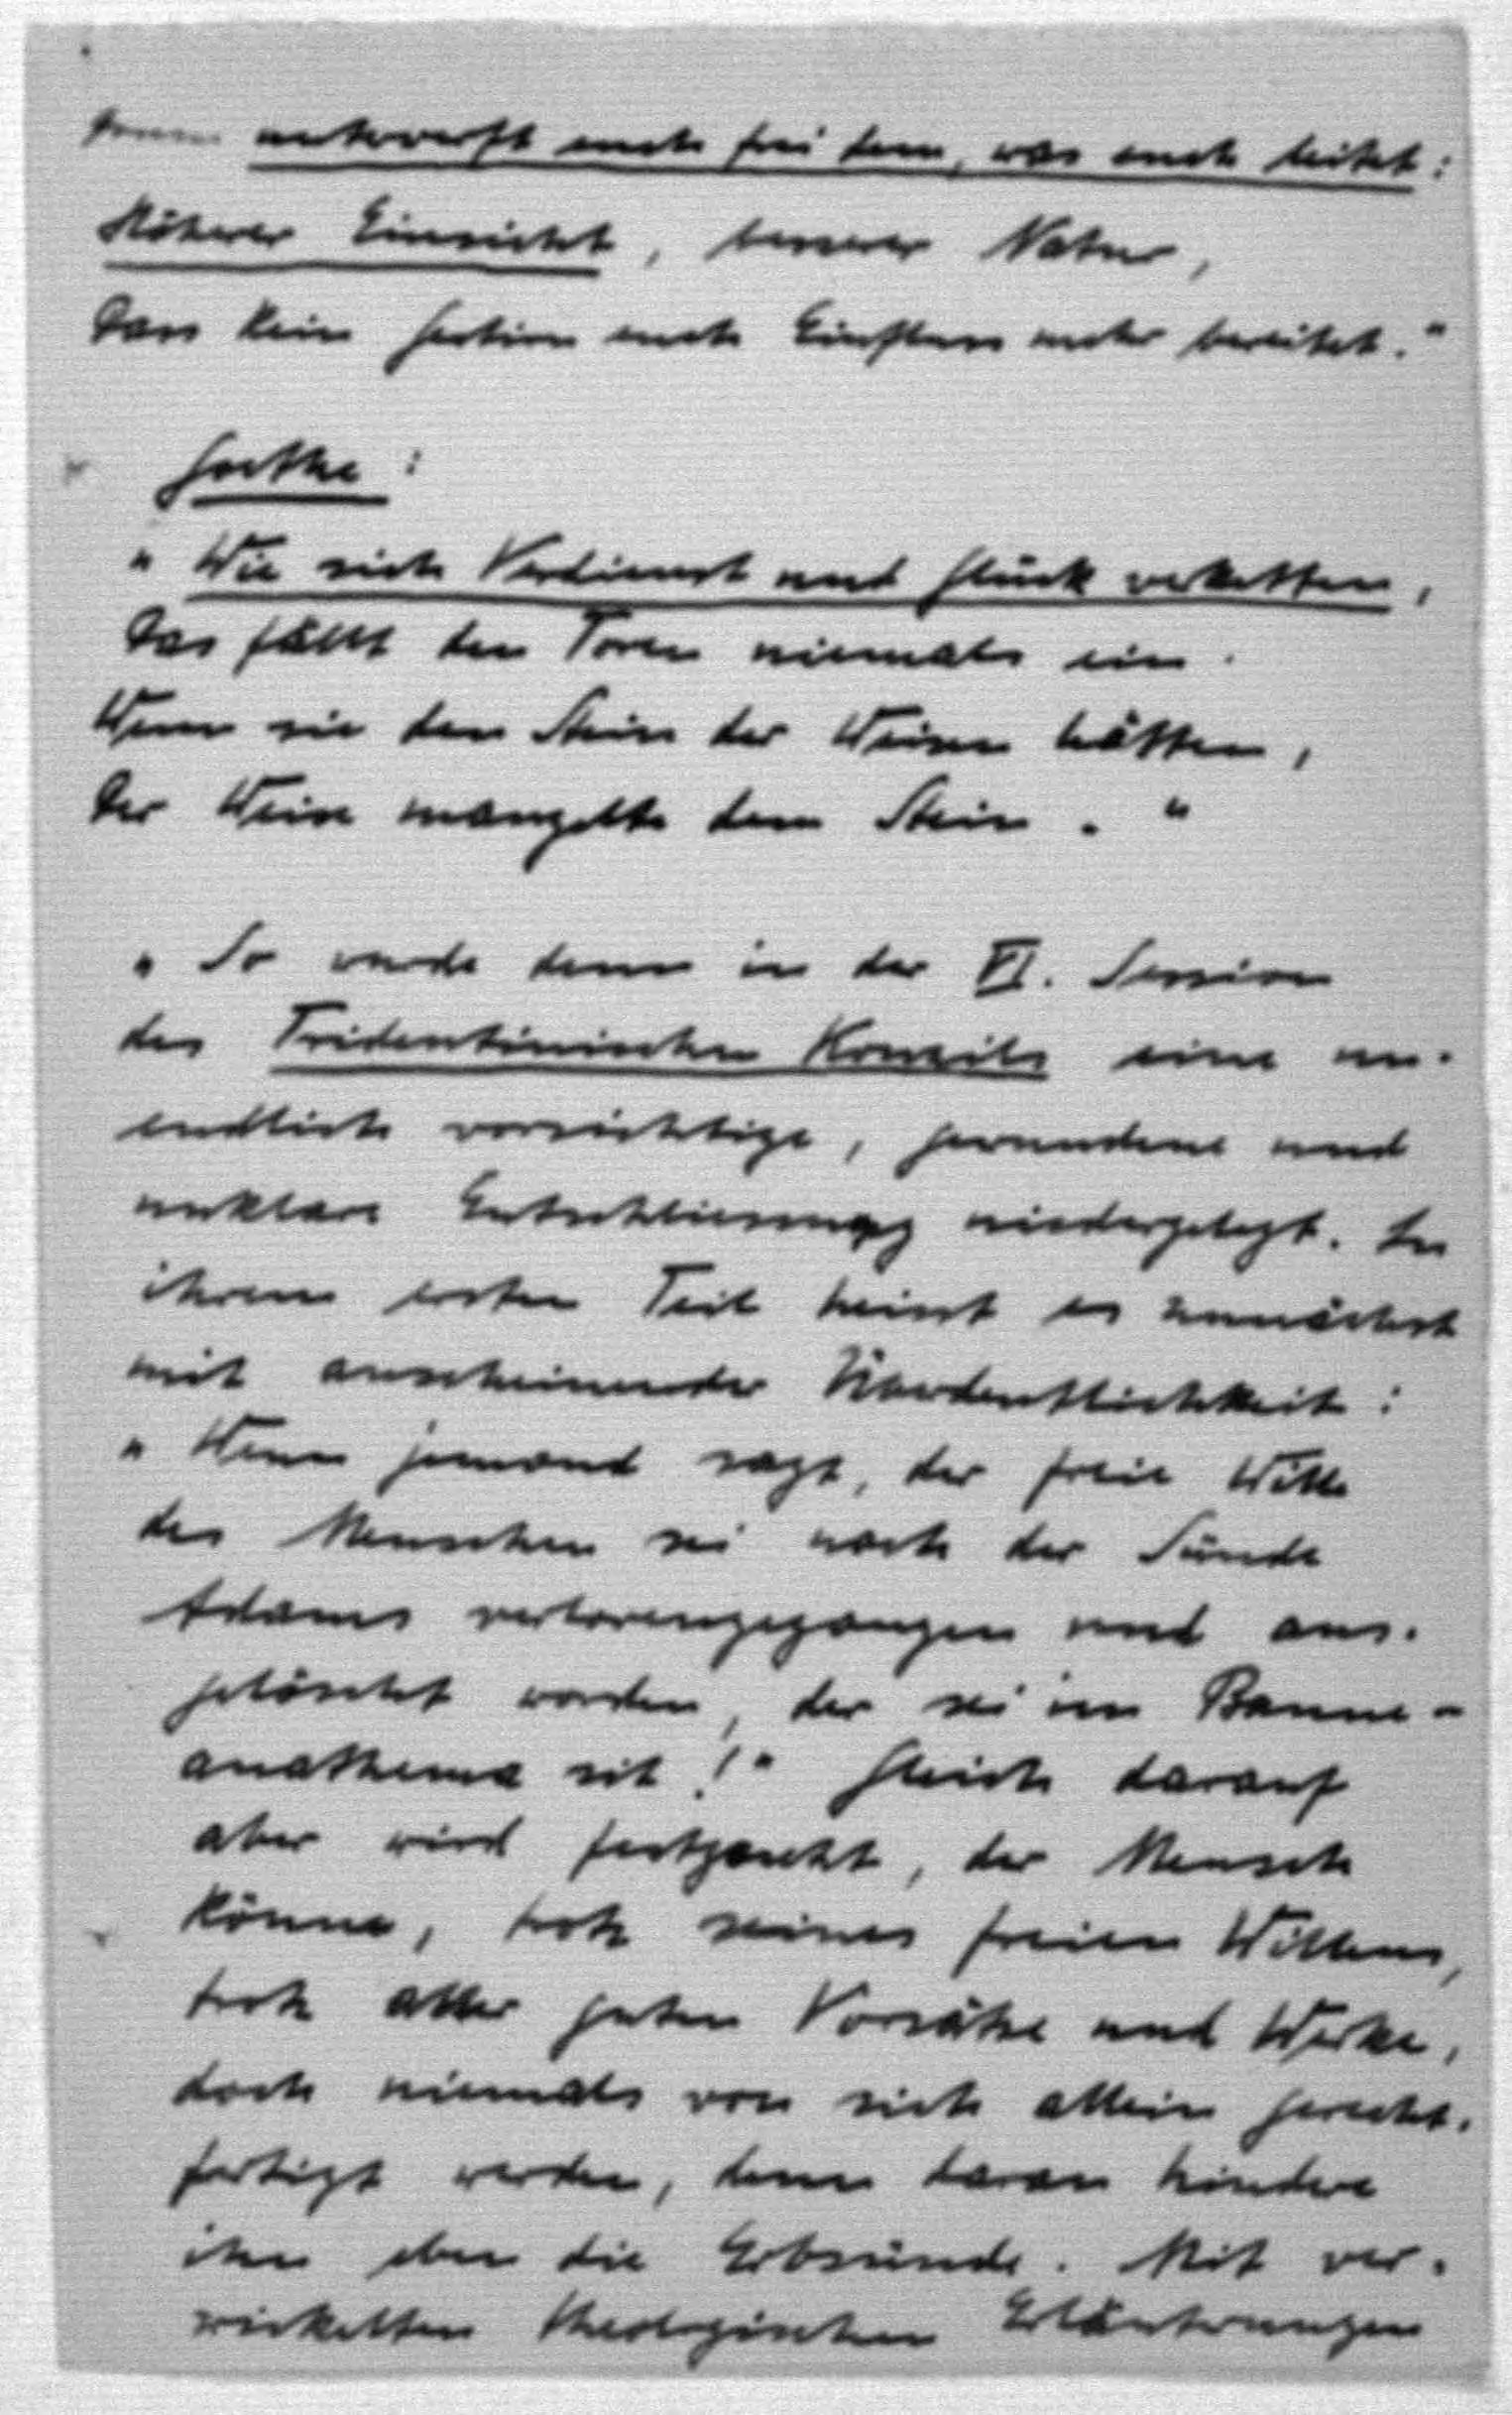 unterwerft euch frei dem, was euch leitet:
Höherer Einsicht, besserer Natur,
Dass kein Gestirn euch Einfluss mehr bereitet."
Goethe:
"Wie sich Verdienst und Glück verketten,
Das fällt den Toren niemals ein.
Wenn sie den Stein der Weisen hätten,
Der Weise mangelte dem Stein."
"So wurde denn in der VI. Session
des Tridentinischen Konzils eine un-
endlich vorsichtige, gewundene und
unklare Entschliessung niedergelegt. In
ihrem ersten Teil heisst es zunächst
mit anscheinender Überdeutlichkeit:
"Wenn jemand sagt, der freie Wille
des Menschen sei nach der Sünde
Adams verlorengegangen und aus-
gelöscht worden, der sei im Banne -
anathema sit!" Gleich darauf
aber wird festgesetzt, der Mensch
könne, trotz seines freien Willens,
trotz aller guten Vorsätze und Werke,
doch niemals von sich allein gerecht-
fertigt werden, denn daran hindere
ihn eben die Erbsünde. Mit ver-
wickelten theologischen Erläuterungen